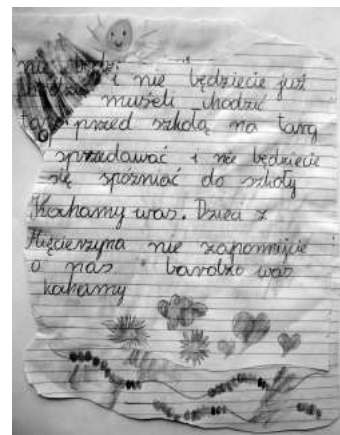 nie będzi
i nie będziecie już
musieli chodzić
przed szkołą na targ
sprzedawać i nie będziecie
się spóźniać do szkoły
Kochamy was. Dzieci z
Męcierzyna nie zapomnijcie
o nas bardzo was
kochamy